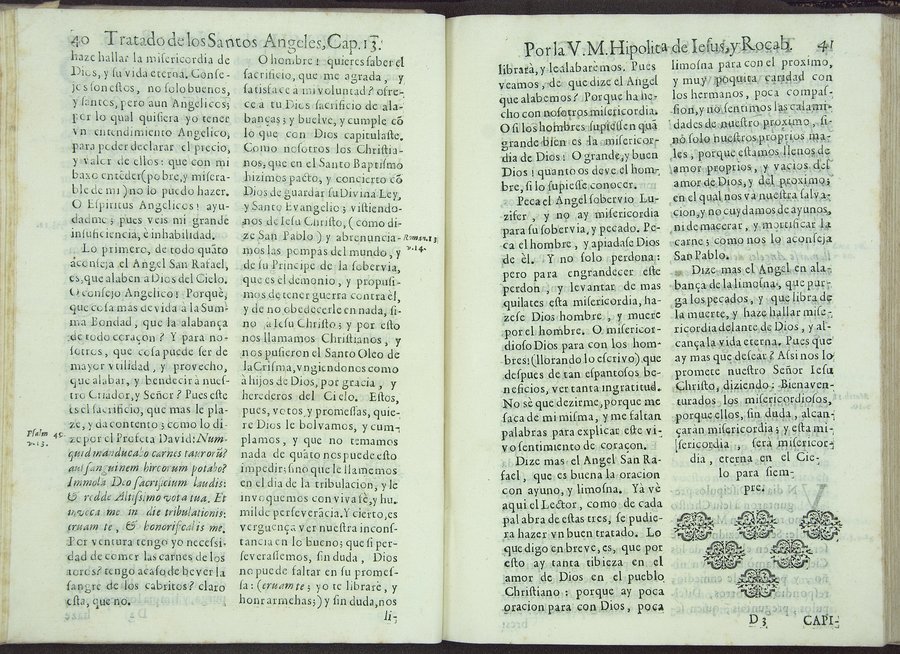 40 Tratado de los Santos Angeles, Cap. 13.
haze hallar la misericordia de
Dios, y su vida eterna. Conse-
jos son estos, no solo buenos,
y santos, pero aun Angelicos;
por lo qual quisiera yo tener
vn entendimiento Angelico,
para poder declarar el precio,
y valor de ellos: que con mi
baxo entẽder (pobre, y misera-
ble de mi) no lo puedo hazer.
O Espiritus Angelicos! ayu-
dadme; pues veis mi grande
insuficiencia, è inhabilidad.
Lo primero, de todo quãto
aconseja el Angel San Rafael,
es, que alaben a Dios del Cielo.
O consejo Angelico! Porquè,
que cosa mas devida à la Sum-
ma Bondad, que la alabança
de todo coraçon? Y para no-
sotros, que cosa puede ser de
mayor vtilidad, y provecho,
que alabar, y bendecir à nues-
tro Criador, y Señor? Pues este
es el sacrificio, que mas le pla-
ze, y da contento; como lo di-
ze por el Profeta David: Num-
quid manducabo carnes taurorũ?
aut sanguinem hircorum potabo?
Immola Deo sacrificium laudis:
& redde Altissimo vota tua. Et
invoca me in die tribulationis:
eruam te, & honorificabis me.
Por ventura tengo yo necessi-
dad de comer las carnes de los
toros? tengo acaso de bever la
sangre de los cabritos? claro
esta, que no.
Psalm 49.
v. 13.
O hombre! quieres saber el
sacrificio, que me agrada, y
satisface a mi voluntad? ofre-
ce a tu Dios sacrificio de ala-
banças; y buelve, y cumple cõ
lo que con Dios capitulaste.
Como nosotros los Christia-
nos, que en el Santo Baptismo
hizimos pacto, y concierto cõ
Dios de guardar su Divina Ley,
y Santo Evangelio; vistiendo-
nos de Iesu Christo, (como di-
ze San Pablo) y abrenuncia-
mos las pompas del mundo, y
de su Principe de la sobervia,
que es el demonio, y propusi-
mos de tener guerra contra èl,
y de no obedecerle en nada, si-
no a Iesu Christo; y por esto
nos llamamos Christianos, y
nos pusieron el Santo Oleo de
la Crisma, vngiendonos como
à hijos de Dios, por gracia, y
herederos del Cielo. Estos,
pues, votos, y promessas, quie-
re Dios le bolvamos, y cum-
plamos, y que no temamos
nada de quãto nos puede esto
impedir; sino que le llamemos
en el dia de la tribulacion, y le
invoquemos con viva fè, y hu-
milde perseverãcia. Y cierto, es
verguença ver nuestra incons-
tancia en lo bueno; que si per-
severassemos, sin duda, Dios
no puede faltar en su promes-
sa: (eruam te; yo te librarè, y
honrarme has;) y sin duda, nos
Roman. 13
v. 14.
li-
Por la V. M. Hipolita de Iesus, y Rocab. 41
librarà, y le alabaremos. Pues
veamos, de que dize el Angel
que alabemos? Porque ha he-
cho con nosotros misericordia.
O si los hombres supiessen quã
grande bien es la misericor-
dia de Dios! O grande, y buen
Dios! quanto os deve el hom-
bre, si lo supiesse conocer.
Peca el Angel sobervio Lu-
zifer, y no ay misericordia
para su sobervia, y pecado. Pe-
ca el hombre, y apiadase Dios
de èl. Y no solo perdona:
pero para engrandecer este
perdon, y levantar de mas
quilates esta misericordia, ha-
zese Dios hombre, y muere
por el hombre. O misericor-
dioso Dios para con los hom-
bres! (llorando lo escrivo) que
despues de tan espantosos be-
neficios, ver tanta ingratitud.
No sè que dezirme, porque me
saca de mi misma, y me faltan
palabras para explicar este vi-
vo sentimiento de coraçon.
Dize mas el Angel San Ra-
fael, que es buena la oracion
con ayuno, y limosna. Ya vè
aqui el Lector, como de cada
palabra de estas tres, se pudie-
ra hazer vn buen tratado. Lo
que digo en breve, es, que por
esto ay tanta tibieza en el
amor de Dios en el pueblo
Christiano: porque ay poca
oracion para con Dios, poca
limosna para con el proximo,
y muy poquita caridad con
los hermanos, poca compas-
sion, y no sentimos las calami-
dades de nuestro proximo, si-
nò solo nuestros proprios ma-
les, porque estamos llenos de
amor proprios, y vacios del
amor de Dios, y del proximo;
en el qual nos va nuestra salva-
cion, y no cuydamos de ayunos,
ni de macerar, y mortificar la
carne; como nos lo aconseja
San Pablo.
Dize mas el Angel en ala-
bança de la limosna, que pur-
ga los pecados, y que libra de
la muerte, y haze hallar mise-
ricordia delante de Dios, y al-
cança la vida eterna. Pues que
ay mas que desear? Assi nos lo
promete nuestro Señor Iesu
Christo, diziendo: Bienaven-
turados los misericordiosos,
porque ellos, sin duda, alcan-
çaran misericordia; y esta mi-
sericordia, serà misericor-
dia, eterna en el Cie-
lo para siem-
pre.
D 3 CAPI-